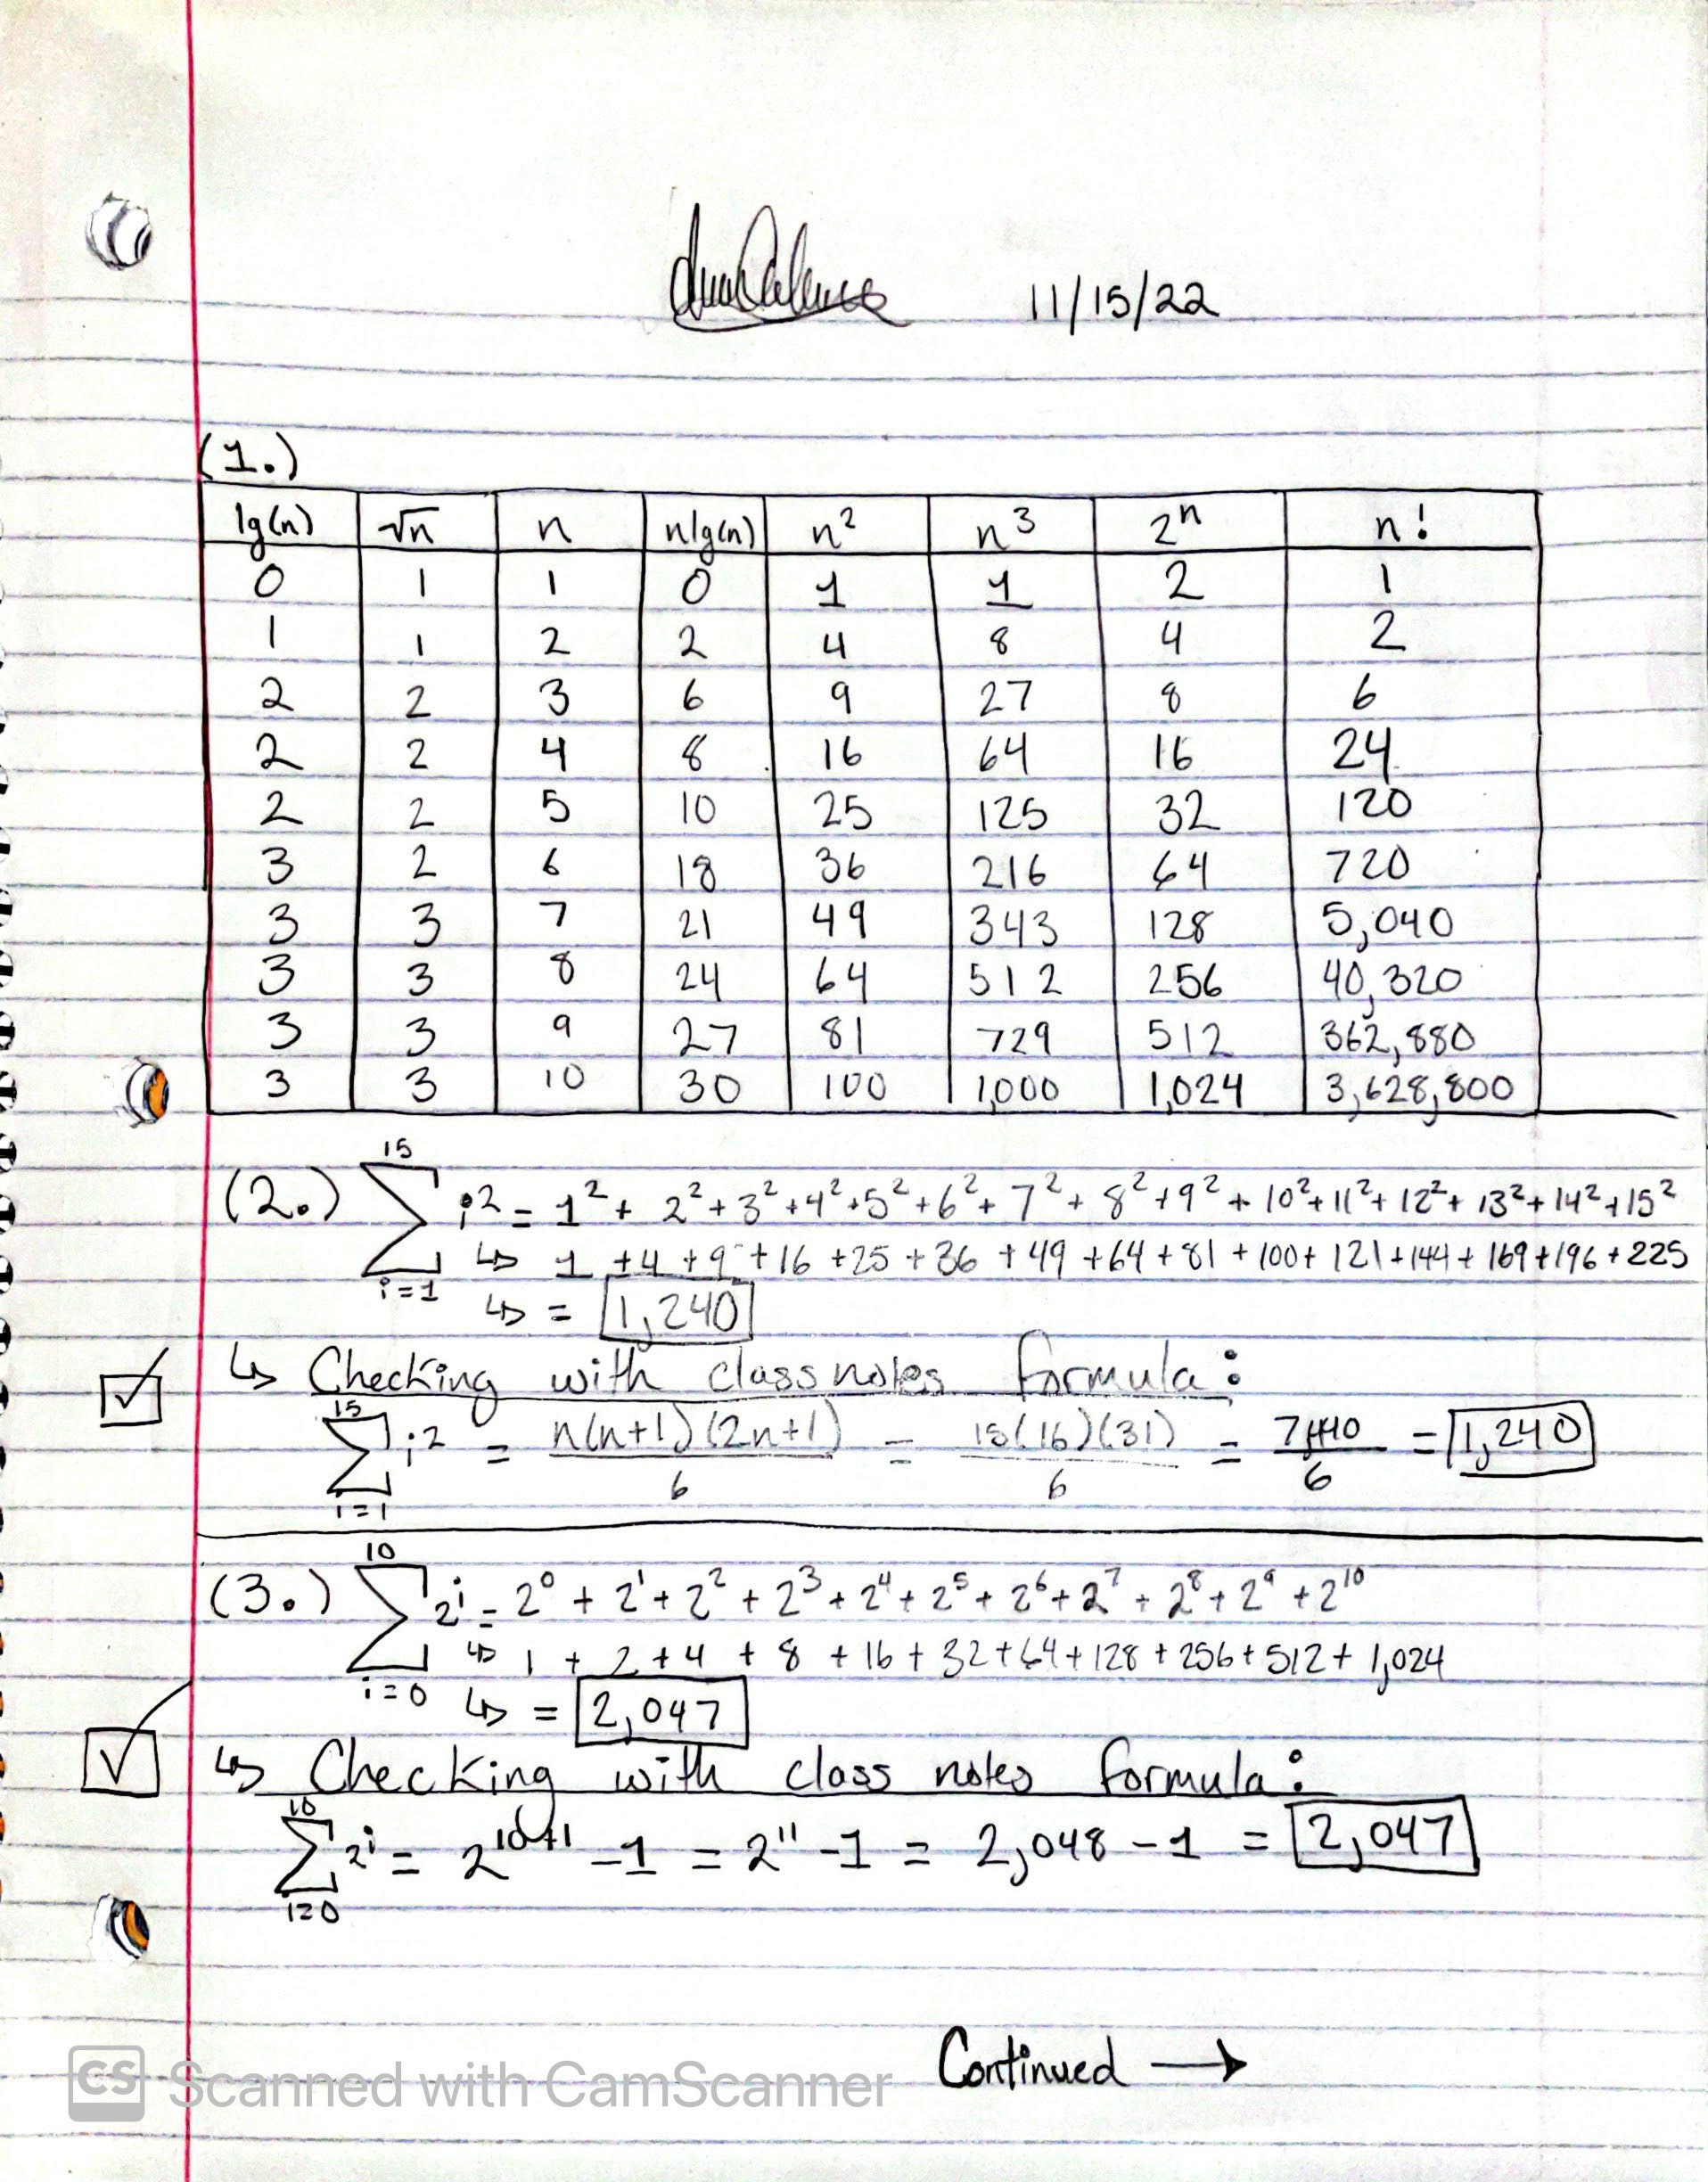 11/15/22
(1.)
lg(n) √n n nlg(n) n² n³ 2ⁿ n!
0 1 1 0 1 1 2 1
1 1 2 2 4 8 4 2
2 2 3 6 9 27 8 6
2 2 4 8 16 64 16 24
2 2 5 10 25 125 32 120
3 2 6 18 36 216 64 720
3 3 7 21 49 343 128 5,040
3 3 8 24 64 512 256 40,320
3 3 9 27 81 729 512 362,880
3 3 10 30 100 1,000 1,024 3,628,800
15
(2.) ∑ i² = 1² + 2² + 3² + 4² + 5² + 6² + 7² + 8² + 9² + 10² + 11² + 12² + 13² + 14² + 15²
i=1 ↳ 1 + 4 + 9 + 16 + 25 + 36 + 49 + 64 + 81 + 100 + 121 + 144 + 169 + 196 + 225
↳ = 1,240
↳ Checking with class notes formula:
15
∑ i² = n(n+1)(2n+1) / 6 = 15(16)(31) / 6 = 7,440 / 6 = 1,240
i=1
10
(3.) ∑ 2ⁱ = 2⁰ + 2¹ + 2² + 2³ + 2⁴ + 2⁵ + 2⁶ + 2⁷ + 2⁸ + 2⁹ + 2¹⁰
↳ 1 + 2 + 4 + 8 + 16 + 32 + 64 + 128 + 256 + 512 + 1,024
i=0 ↳ = 2,047
↳ Checking with class notes formula:
10
∑ 2ⁱ = 2¹⁰⁺¹ - 1 = 2¹¹ - 1 = 2,048 - 1 = 2,047
i=0
Continued →
CS Scanned with CamScanner